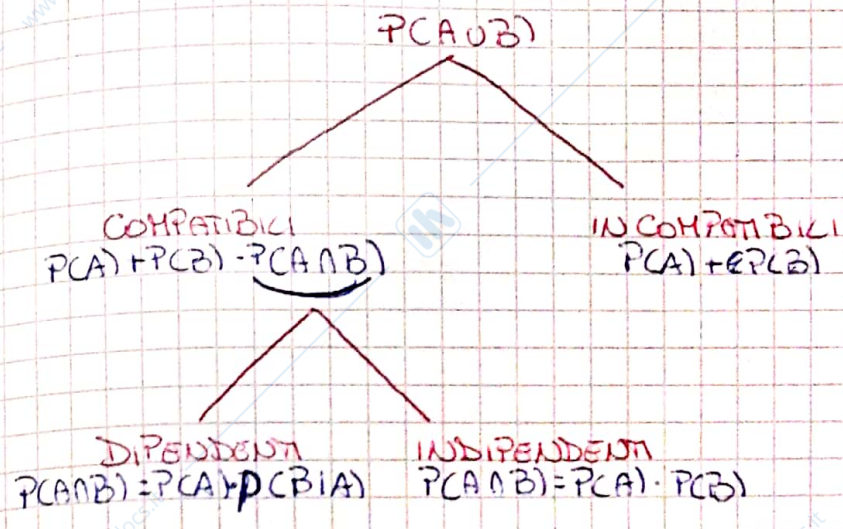 P(A∪B)
COMPATIBILI
P(A)+P(B)-P(A∩B)
INCOMPATIBILI
P(A)+P(B)
DIPENDENTI
P(A∩B)=P(A)·P(B|A)
INDIPENDENTI
P(A∩B)=P(A)·P(B)